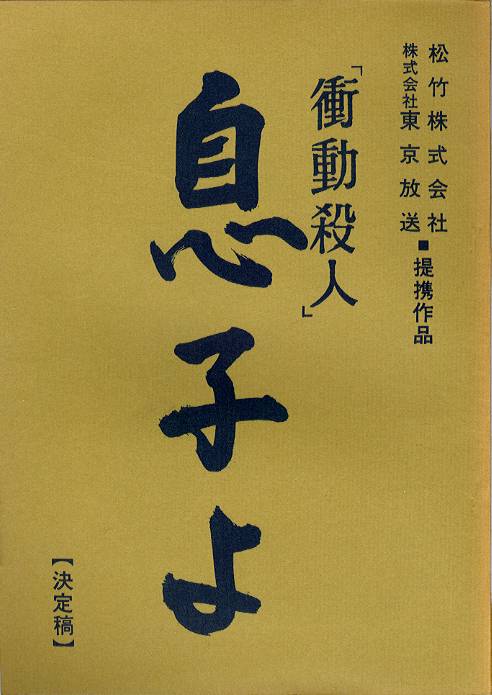 松竹株式会社
株式会社東京放送■提携作品
「衝動殺人」
息子よ
【決定稿】